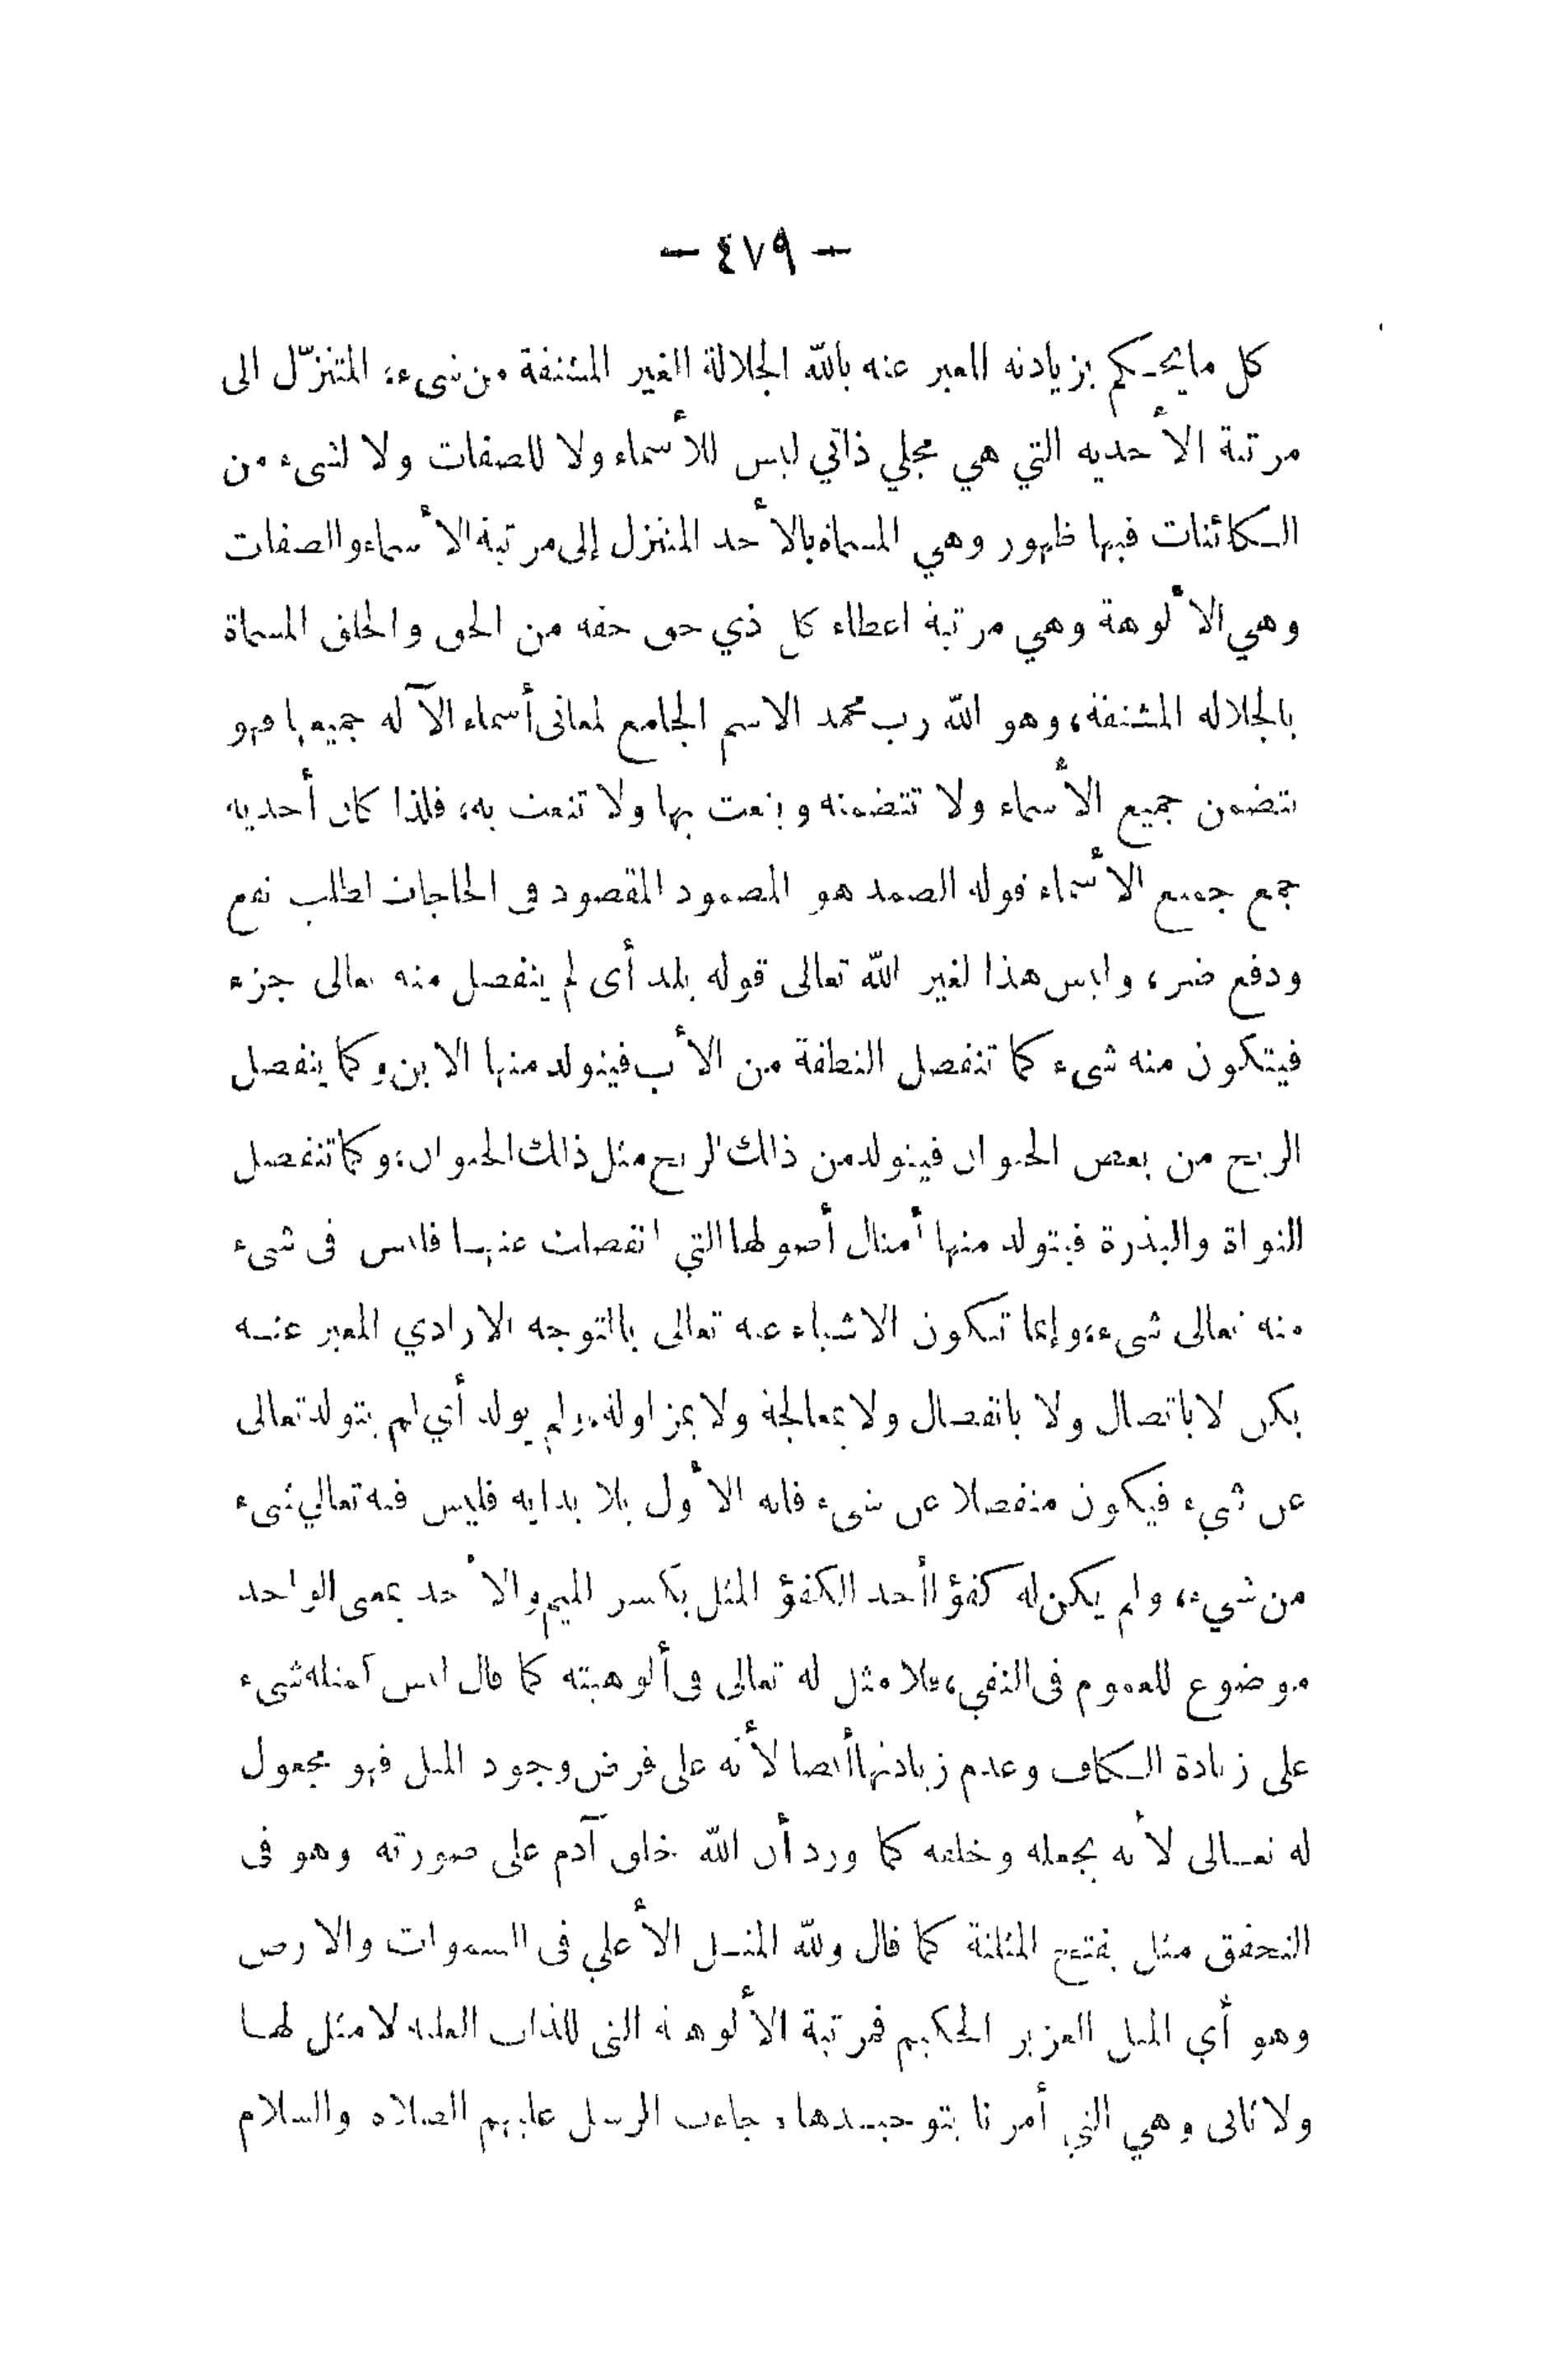 — ٤٧٩ —
كل ما يحكم بزيادته المعبر عنه بالله الجلالة الغير المشتقة من شىء، المتنزّل الى
مرتبة الأحديه التي هي مجلي ذاتي ليس للأسماء ولا للصفات ولا لشىء من
الكائنات فيها ظهور وهي المسماة بالأحد المتنزل إلى مرتبة الأسماء والصفات
وهي الألوهة وهي مرتبة اعطاء كل ذي حق حقه من الحق والخلق المسماة
بالجلاله المشتقة، وهو الله رب محمد الاسم الجامع لمعانى أسماء الآله جميعها فهو
يتضمن جميع الأسماء ولا تتضمنه وينعت بها ولا تنعت به، فلذا كان أحديه
جمع جميع الأسماء قوله الصمد هو المصمود المقصود فى الحاجات لطلب نفع
ودفع ضر، وليس هذا لغير الله تعالى قوله يلد أى لم ينفصل منه تعالى جزء
فيتكون منه شىء كما تنفصل النطفة من الأب فيتولد منها الابن وكما ينفصل
الريح من بعض الحيوان فيتولد من ذالك الريح مثل ذالك الحيوان، وكما تنفصل
النواة والبذرة فيتولد منها أمثال أصولها التي انفصلت عنها فليس فى شىء
منه تعالى شىء، وإنما تتكون الاشياء عنه تعالى بالتوجه الارادي المعبر عنه
بكن لا باتصال ولا بانفصال ولا بمعالجة ولا بمزاولة، ولم يولد أي لم يتولد تعالى
عن شيء فيكون منفصلا عن شىء فانه الأول بلا بدايه فليس فيه تعالي شىء
من شيء، ولم يكن له كفؤا أحد الكفؤ المثل بكسر الميم والأحد بمعنى الواحد
موضوع للعموم فى النفي، فلا مثل له تعالى فى ألوهيته كما قال ليس كمثله شىء
على زيادة الكاف وعدم زيادتها أيضا لأنه على فرض وجود المثل فهو مجعول
له تعالى لأنه بجعله وخلقه كما ورد أن الله خلق آدم على صورته وهو فى
التحقق مثل بفتح المثلثة كما قال ولله المثل الأعلي فى السموات والارض
وهو أي المثل العزيز الحكيم فمرتبة الألوهة التى للذات العليه لا مثل لها
ولا ثانى وهي التي أمرنا بتوحيدها، جاءت الرسل عليهم الصلاه والسلام